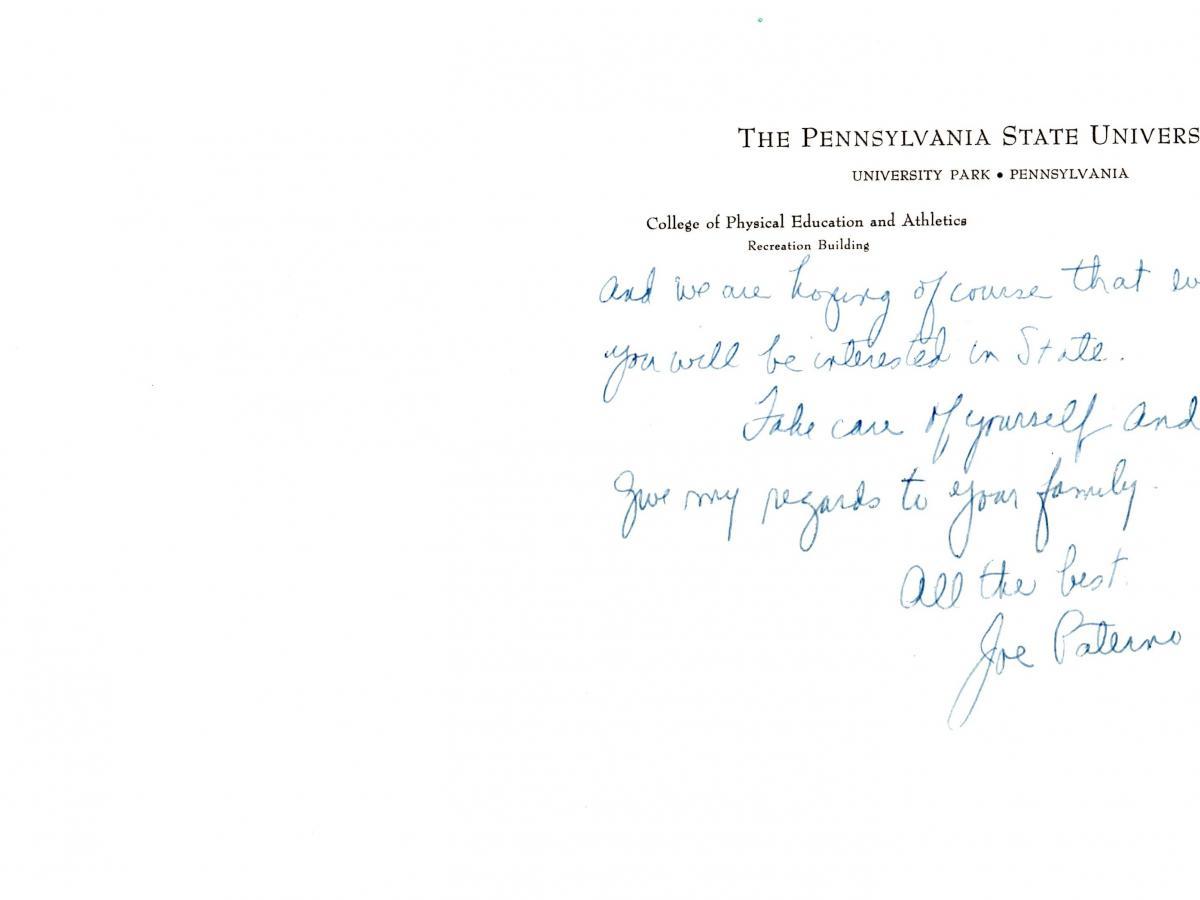 THE PENNSYLVANIA STATE UNIVERS
UNIVERSITY PARK • PENNSYLVANIA
College of Physical Education and Athletics
Recreation Building
and we are hoping of course that
you will be interested in State.
Take care of yourself and
give my regards to your family.
All the best.
Joe Paterno